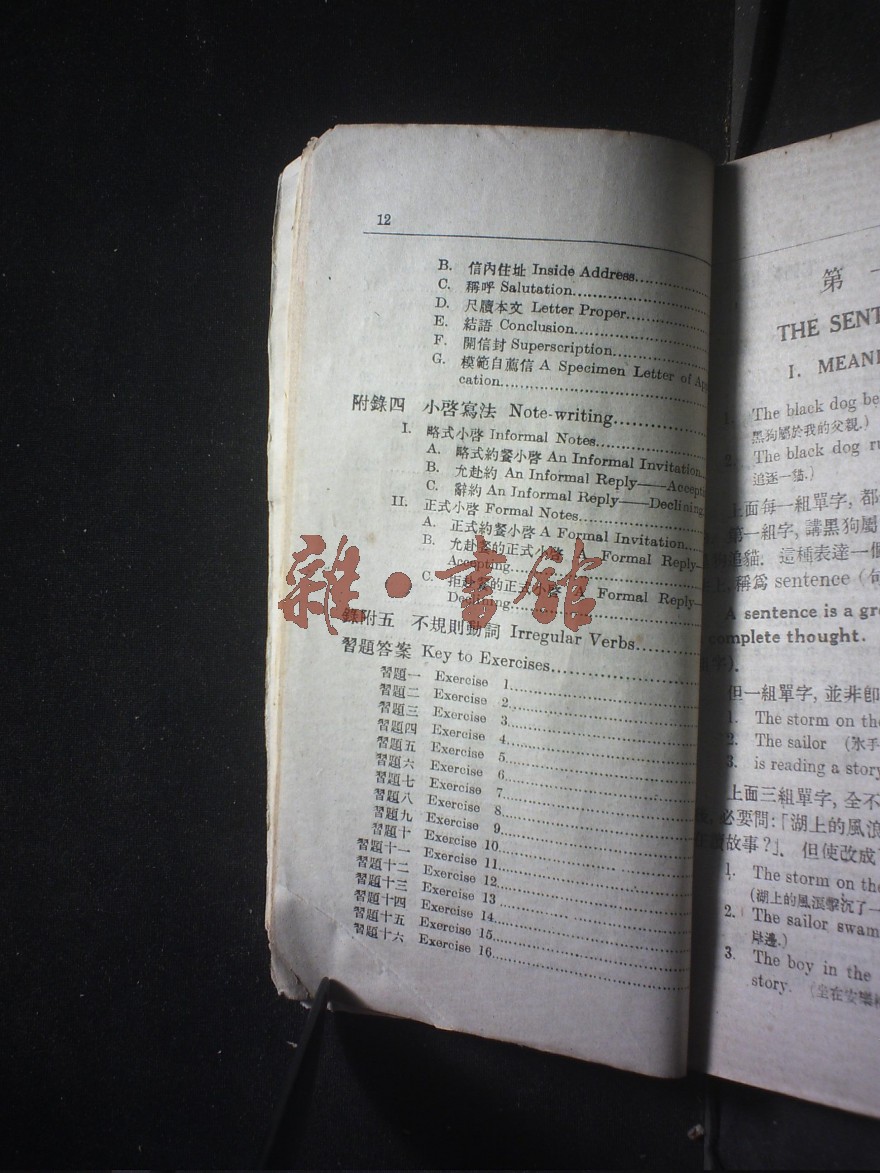 12
B. 信內住址 Inside Address
C. 稱呼 Salutation
D. 尺牘本文 Letter Proper
E. 結語 Conclusion
F. 開信封 Superscription
G. 模範自薦信 A Specimen Letter of Appli
cation
附錄四 小啓寫法 Note-writing
I. 略式小啓 Informal Notes
A. 略式約餐小啓 An Informal Invitation
B. 允赴約 An Informal Reply——Accepti
C. 辭約 An Informal Reply——Declining
II. 正式小啓 Formal Notes
A. 正式約餐小啓 A Formal Invitation
B. 允赴餐的正式小啓 A Formal Reply—
Accepting
C. 拒赴餐的正式小啓 A Formal Reply—
Declining
錄附五 不規則動詞 Irregular Verbs
習題答案 Key to Exercises
習題一 Exercise 1
習題二 Exercise 2
習題三 Exercise 3
習題四 Exercise 4
習題五 Exercise 5
習題六 Exercise 6
習題七 Exercise 7
習題八 Exercise 8
習題九 Exercise 9
習題十 Exercise 10
習題十一 Exercise 11
習題十二 Exercise 12
習題十三 Exercise 13
習題十四 Exercise 14
習題十五 Exercise 15
習題十六 Exercise 16
雜·書館
第
THE SENT
I. MEANI
1. The black dog be
黑狗屬於我的父親.)
2. The black dog ru
追逐一貓.)
上面每一組單字, 都
第一組字, 講黑狗屬
狗追貓. 這種表達一個
上, 稱爲 sentence (句
A sentence is a gro
complete thought.
但一組單字, 並非卽
1. The storm on the
2. The sailor (水手
3. is reading a story
上面三組單字, 全不
必要問:「湖上的風浪
在讀故事?」. 但使改成
1. The storm on the
(湖上的風浪擊沉了一
2. The sailor swam
岸邊.)
3. The boy in the
story. (坐在安樂椅